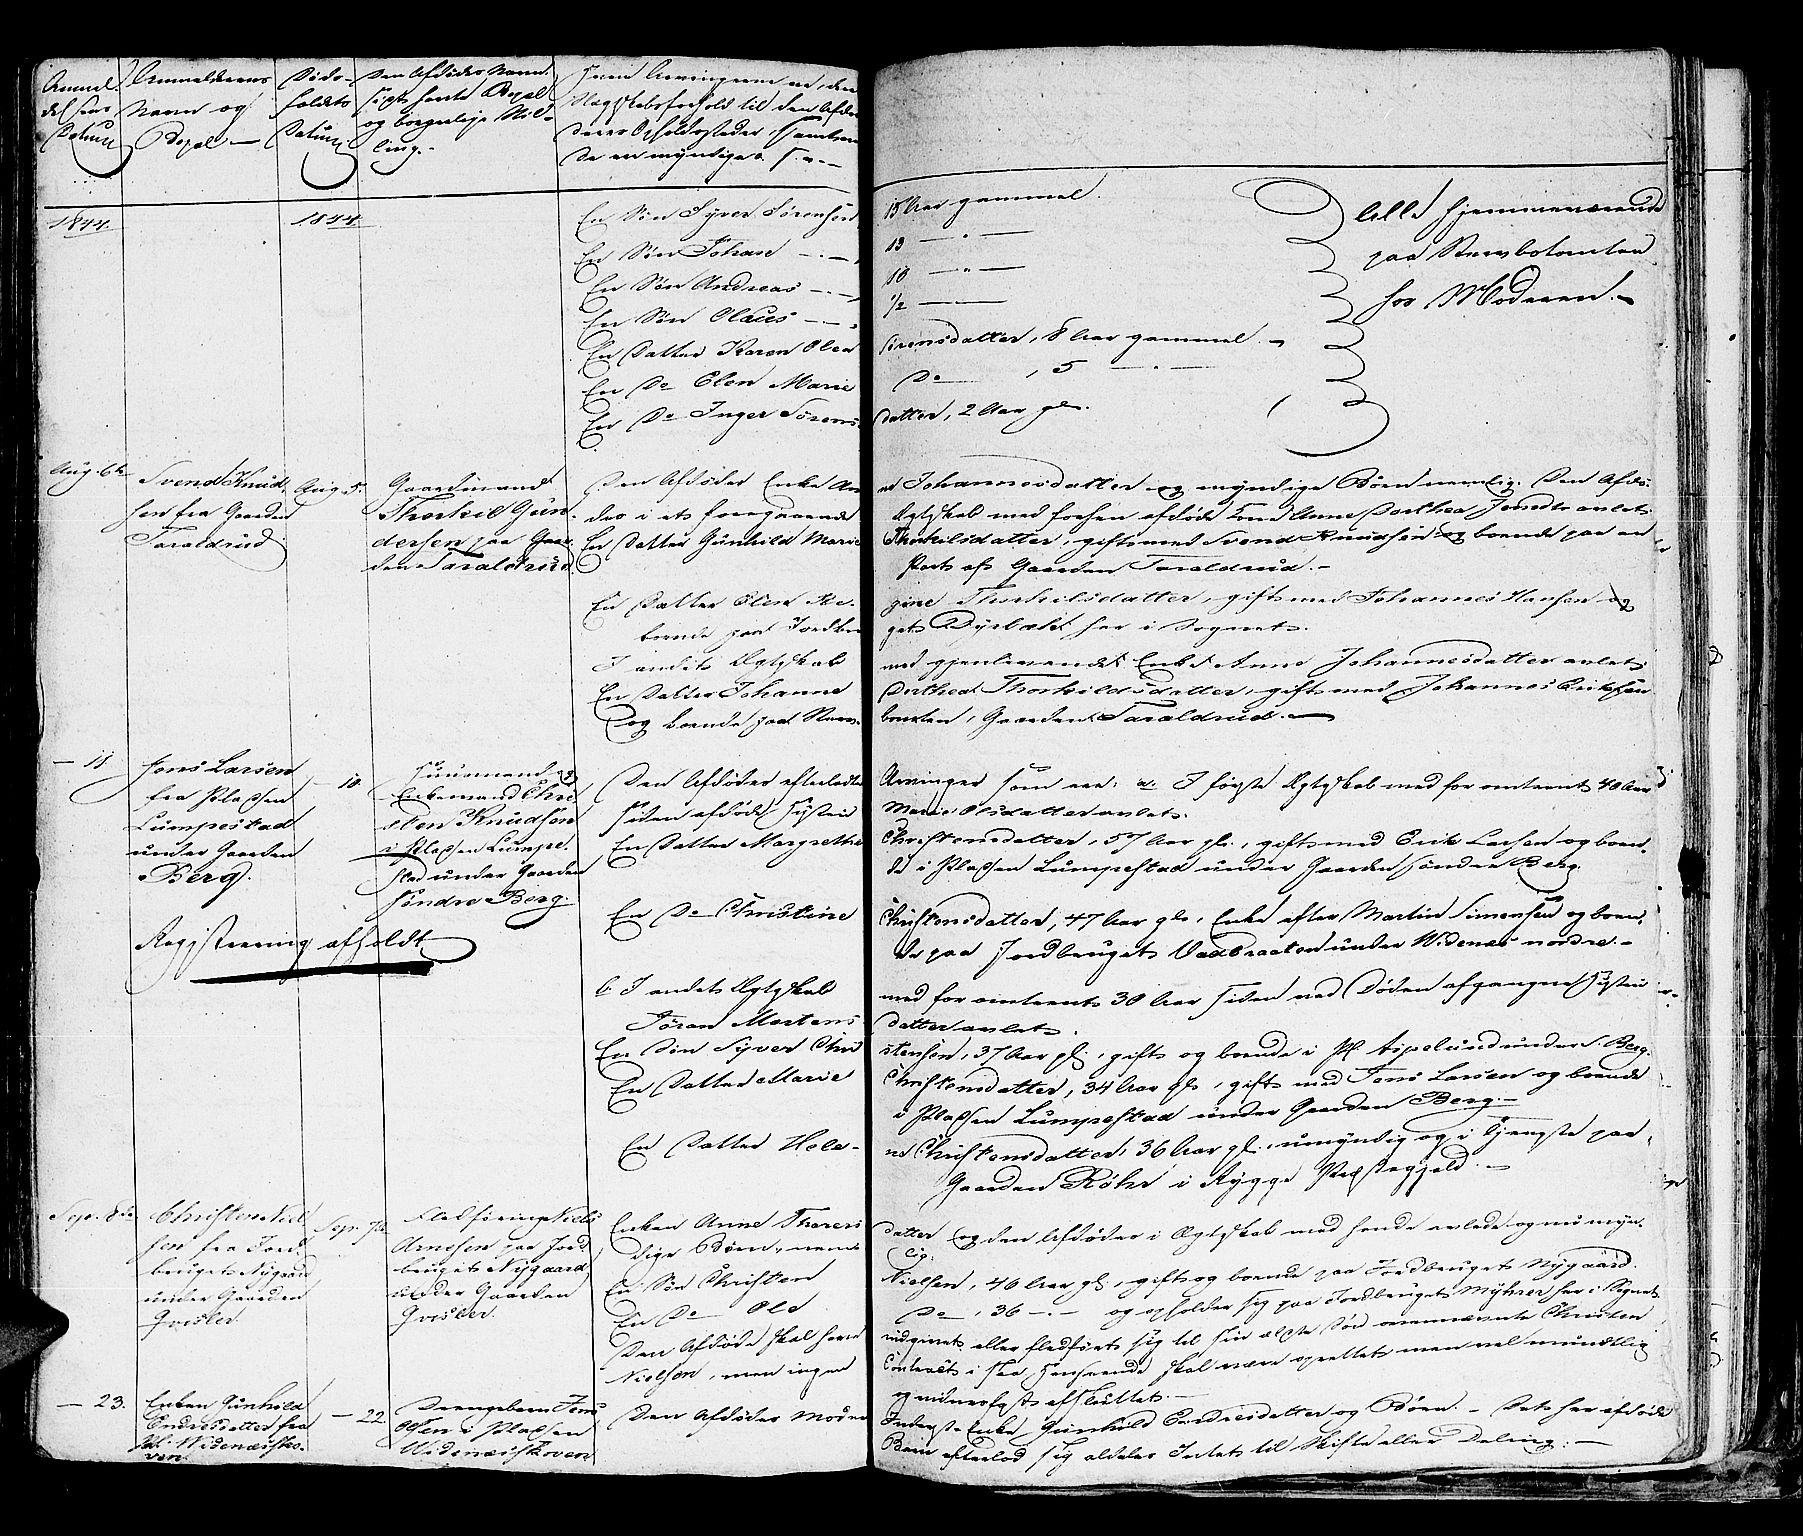 Anmel-
delsens
Datum
Anmelderens
Navn og
Bopæl
Døds-
faldets
Datum
Den Afdødes Navn,
sidst havte Bopæl
og borgerlige Stil-
ling.
Hvem Arvingerne ere, deres
Slægtskabsforhold til den Afdøde
deres Opholdssteder,
De ere myndige
1844.
1844.
En Søn Syver Sørensen, 15 Aar gammel.
En Søn Johan 13
En Søn Andreas 10
En Søn Olaus ½
En Datter Karen Olea Sørensdatter, 8 Aar gammel.
En Do Elen Marie Do, 5
En Do Inger Sørens- datter, 2 Aar gl.
Alle hjemmeværende
paa Stervbotomten
hos Moderen.
Aug. 6te
Svend Knud-
sen fra Gaarden
Taraldrud
Aug. 5.
Gaardmand
Thorkil Gun-
dersen paa Gaar-
den Taraldrud
Den Afdødes Enke An- ne Johannesdatter og myndige Børn nemlig. Den Afdø-
des i et foregaaende Ægtskab med forhen afdøde Kone Anne Dorthea Jensdtr avlet.
En Datter Gunhild Marie Thorkilsdatter, gift med Svend Knudsen og boende paa en
Part af Gaarden Taraldrud.
En Datter Elen Re- gine Thorkilsdatter, gift med Johannes Hansen og
boende paa Jordbru- get Dyrbækk her i Sognet.
I andet Ægtskab med gjenlevende Enke Anne Johannesdatter avlet:
En Datter Johanne Dorthea Thorkildsdatter, gift med Johannes Eriksen
og boende paa Sterv- boetten, Gaarden Taraldrud.
— 11
Jens Larsen
fra Pladsen
Lumpestad
under Gaarden
Berg.
Registrering afholdt
— 10.
Huusmand og
Enkemand Chri-
sten Knudsen
i Pladsen Lumpe-
stad under Gaarden
Søndre Berg.
Den Afdødes efterladte Arvinger som ere: a. I første Ægtskab med for omtrent 40 Aar
siden afdøde Hustru Marie Olsdatter avlet.
En Datter Margrethe Christensdatter, 57 Aar gl., gift med Erik Larsen og boen-
de i Pladsen Lumpestad under Gaarden søndre Berg.
En Do Christine Christensdatter, 47 Aar gl., Enke efter Martin Simensen og boen-
de paa Jordbruget Vadbraaten under Widenes nordre.
b. I andet Ægtskab med for omtrent 30 Aar siden ved Døden afgangne Hustru
Jøran Mortens- datter avlet.
En Søn Syver Chri- stensen, 37 Aar gl., gift og boende i Pl. Aspelund under Berg.
En Datter Marie Christensdatter, 34 Aar gl., gift med Jens Larsen og boende
i Pladsen Lumpestad under Gaarden Berg.
En Datter Hele- ne Christensdatter, 36 Aar gl., umyndig og i Tjeneste paa
Gaarden Røhr i Rygge Præstegjeld.
Sep. 8de
Christen Niel-
sen fra Jord-
bruget Nygaard
under Gaarden
Qvisler.
Sep. 7de
Fledføring Niels
Arnesen paa Jord-
bruget Nygaard
under Gaarden
Qvisler.
Enken Anne Thorers- datter og den Afdødes i Ægtskab med hende avlede og nu myn-
dige Børn, nem- lig:
En Søn Christen Nielsen, 40 Aar gl., gift og boende paa Jordbruget Nygaard.
En Do Ole Do, 36 og opholder sig paa Jordbruget Myhrer her i Sognet.
Den Afdøde skal have indgivet eller fledført sig til sin ældste Søn ovennævnte Christen
Nielsen, men ingen Contract i saa Henseende skal være oprettet men vel mundtlig
og vidnefast afsluttet.
— 23.
Enken Gunhild
Endresdatter fra
Pl. Widenæsko-
ven.
— 22
Drengebarn Jens
Olsen i Pladsen
Widenæsskoven
Den Afdødes Moder Inderst-Enke Gunhild Endresdatter og Børn. Dette her afdøde
Barn efterlod sig aldeles Intet til Skifte eller Deling.